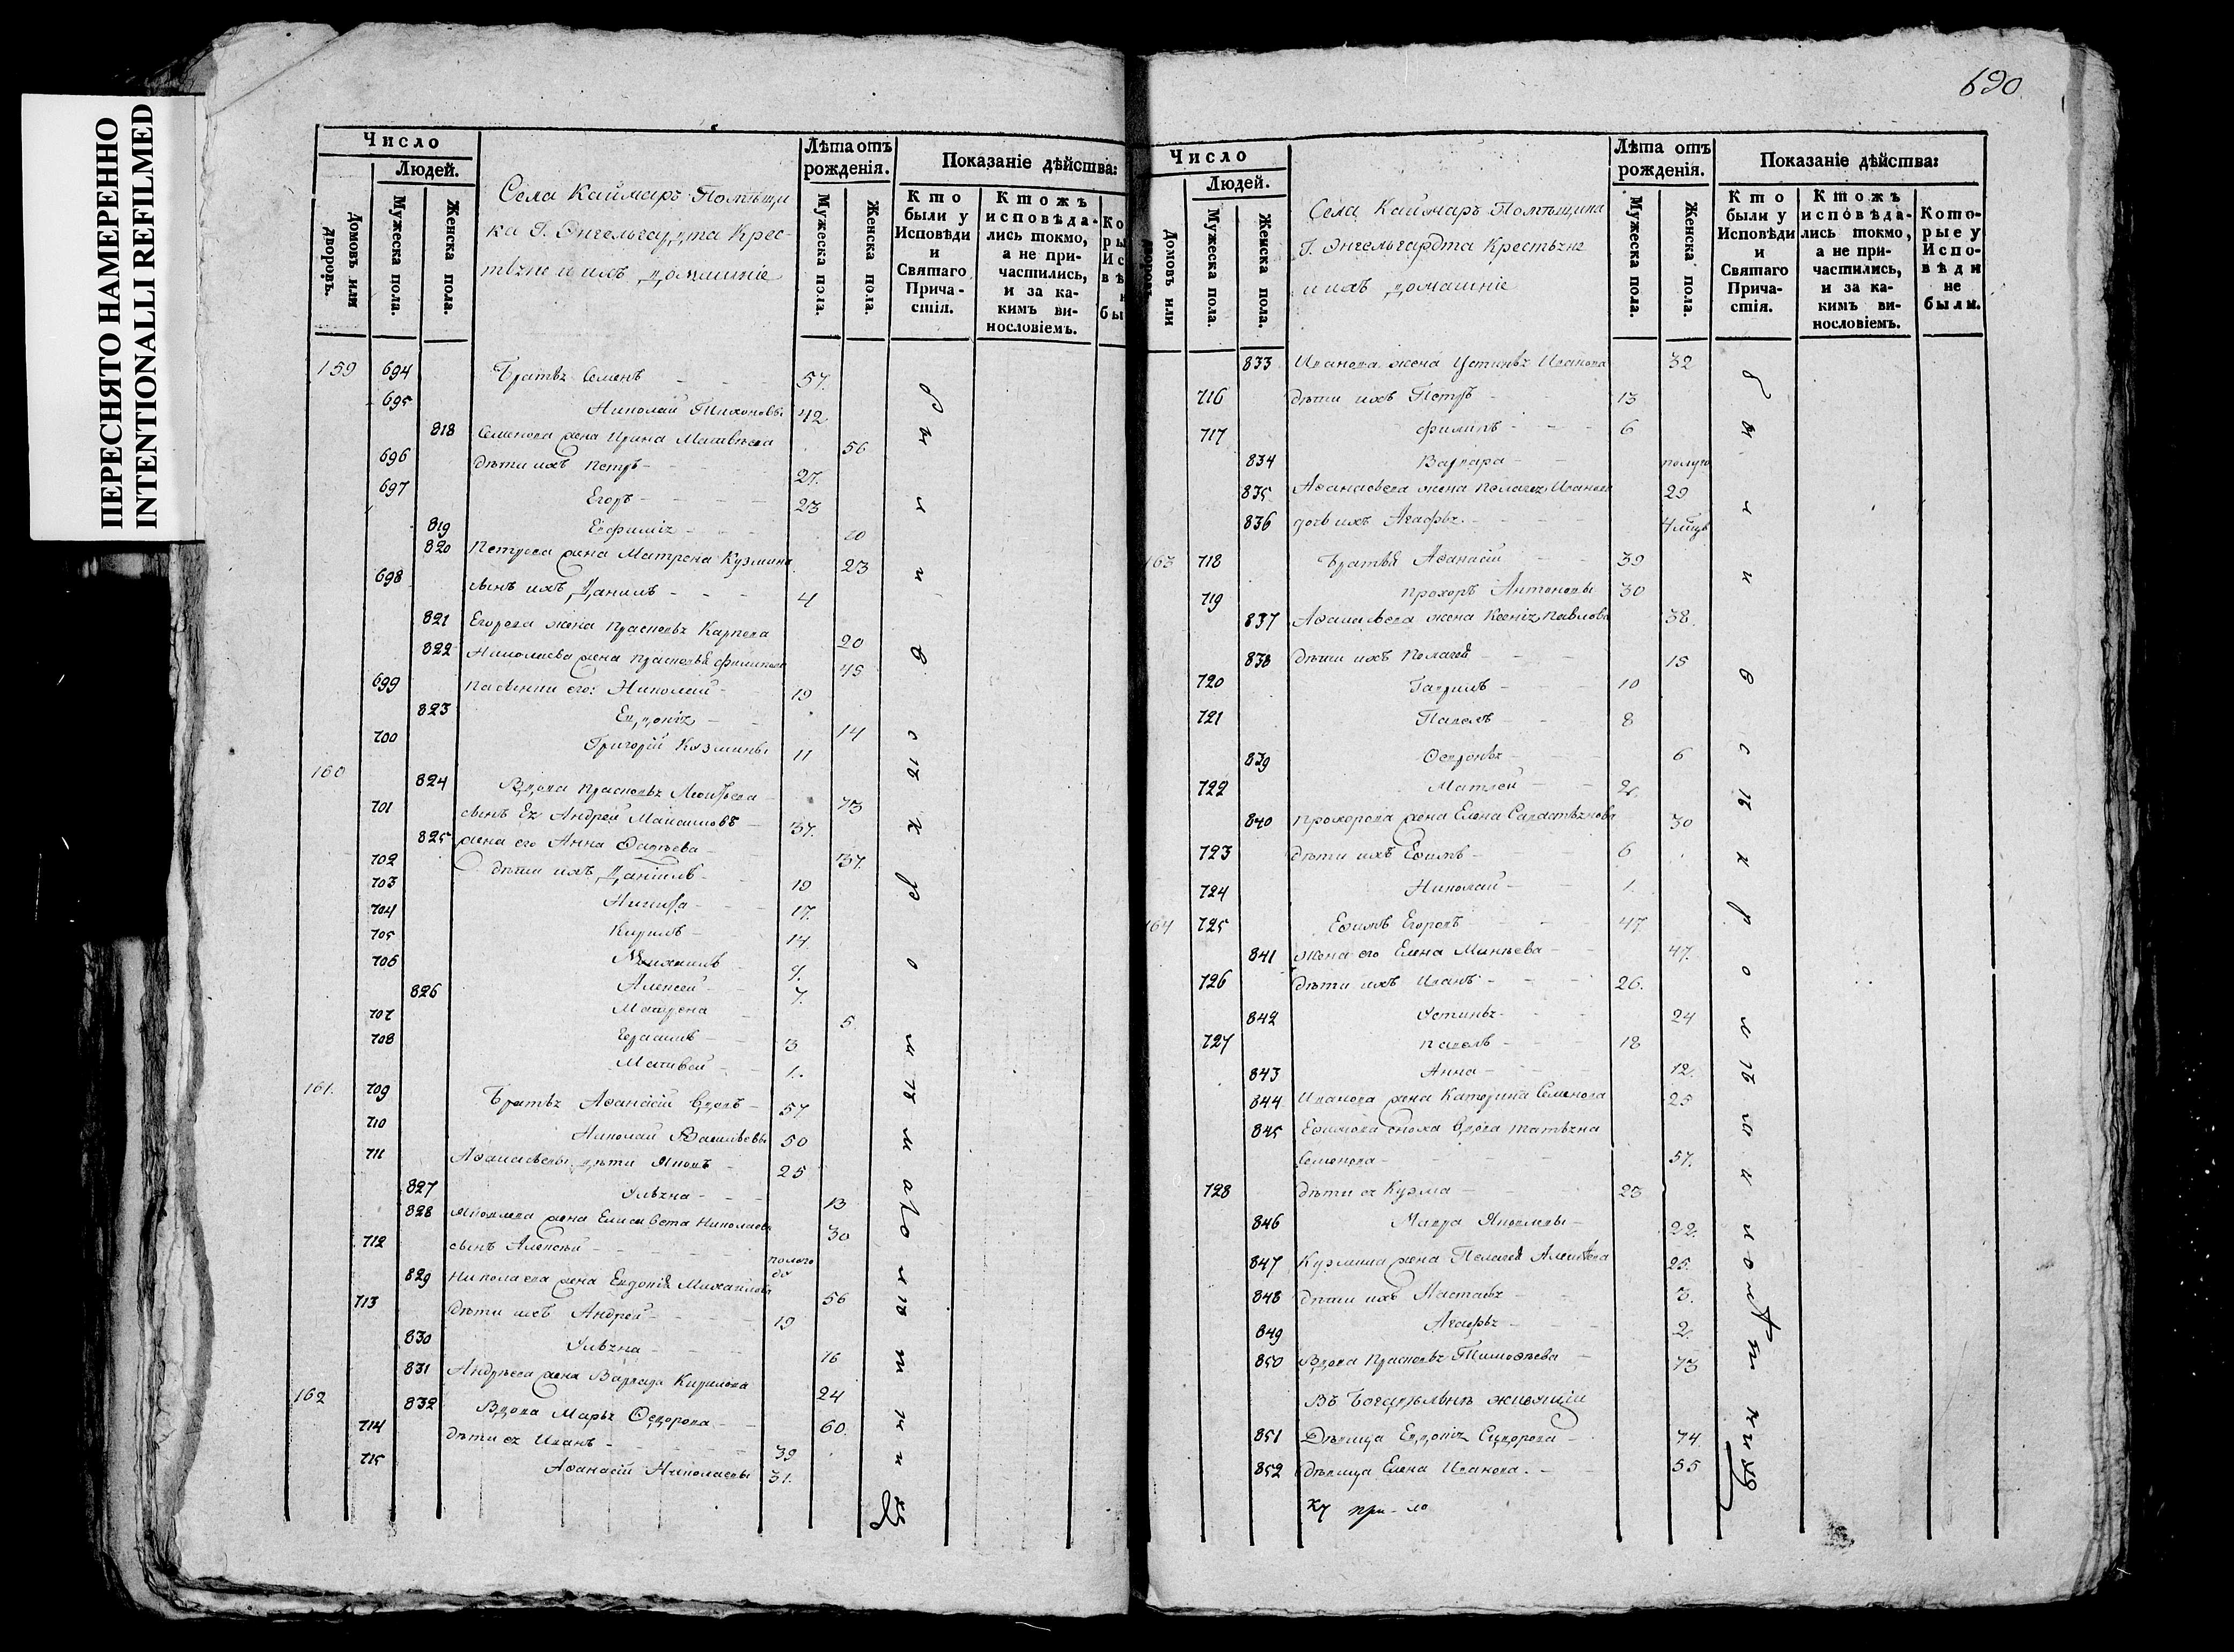 ПЕРЕСНЯТО НАМЕРЕННО
INTENTIONALLI REFILMED
Число
Людей.
Домовъ или дворовъ.
Мужеска пола.
Женска пола.
Села Каймаръ Помѣщи
ка Г. Энгельгардта Крес-
тьяне и ихъ домашніе
Лѣта отъ рожденія.
Мужеска пола.
Женска пола.
Показаніе дѣйства:
Кто были у Исповѣди и Святаго Причастія.
Ктожъ исповѣдались токмо, а не причастились, и за какимъ винословіемъ.
159 694 Братья Семенъ 57.
695 Николай Тихоновы 42
818 Семенова жена Ирина Матвѣева 56
696 дѣти ихъ Петръ 27.
697 Егоръ 23
819 Евфимія 20
820 Петрова жена Матрена Кузмина 23
698 сынъ ихъ Данилъ 4
821 Егорова жена Прасковья Карпова 20
822 Николаева жена Прасковья Филипова 45
699 пасынки его: Николай 19
823 Евдокія 14
700 Григорій Козмины 11
160 824 Вдова Прасковья 73
701 сынъ Ея Андрей 37.
825 жена его Анна 37.
702 дѣти ихъ Даніилъ 19
703 Никита 17.
704 Кирилъ 14
705 Михаилъ 9.
706 Алексей 7.
826 Матрена 5
707 Герасимъ 3
708 Матвей 1.
161. 709 Братья Аѳанасій вдовъ 57
710 Николай Васильевы 50
711 Аѳанасьевы дѣти Яковъ 25
827 Ульяна 13
828 Яковлева жена Елисавета Николаева 30
712 сынъ Алексѣй полого
да
829 Николаева жена Евдокія Михаилова 56
713 дѣти ихъ Андрей 19
830 Ульяна 16
831 Андрѣева жена Варвара Кирилова 24
162 832 Вдова Марья Ѳедорова 60.
714 дѣти ея Иванъ 39
715 Аѳанасій Николаевы 31.
690
Число
Людей.
Домовъ или дворовъ.
Мужеска пола.
Женска пола.
Села Каймаръ Помѣщика
Г. Энгельгардта Крестьяне
и ихъ домашніе
Лѣта отъ рожденія.
Мужеска пола.
Женска пола.
Показаніе дѣйства:
Кто были у Исповѣди и Святаго Причастія.
Ктожъ исповѣдались токмо, а не причастились, и за какимъ винословіемъ.
Которые у Исповѣди не были.
833 Иванова жена Устинья Иванова 32
716 дѣти ихъ Петръ 13
717 Филипъ 6
834 Варвара полуго
835 Аѳанасьева жена Пелагея Иванова 29
836 дочь ихъ Агафья 4 мцъ
163 718 Братья Аѳанасій 39
719 Прохоръ Антоновы 30
837 Аѳанасьева жена Ксенія Павлова 38.
838 дѣти ихъ Пелагея 15
720 Гаврилъ 10
721 Павелъ 8
839 Ѳевронья 6
722 Матвей 2.
840 Прохорова жена Елена Савастьянова 30
723 дѣти ихъ Ефимъ 6
724 Николай 1.
164 725 Ефимъ Егоровъ 47
841 жена его Елена Минѣева 47.
726 дѣти ихъ Иванъ 26.
842 Устинья 24
727 Павелъ 18
843 Анна 12.
844 Иванова жена Катерина Семенова 25
845 Ефимова сноха вдова Татьяна
Семенова 57.
728 дѣти ея Кузма 23
846 Мавра Яковлевы 22.
847 Кузмина жена Пелагея Алексѣева 25.
848 дѣти ихъ Настасья 3.
849 Агафья 2.
850 Вдова Прасковья Тимоѳѣева 73
Въ Богадѣльнѣ живущія
851 Дѣвица Евдокія Сидорова 74
852 дѣвица Елена Иванова. 55